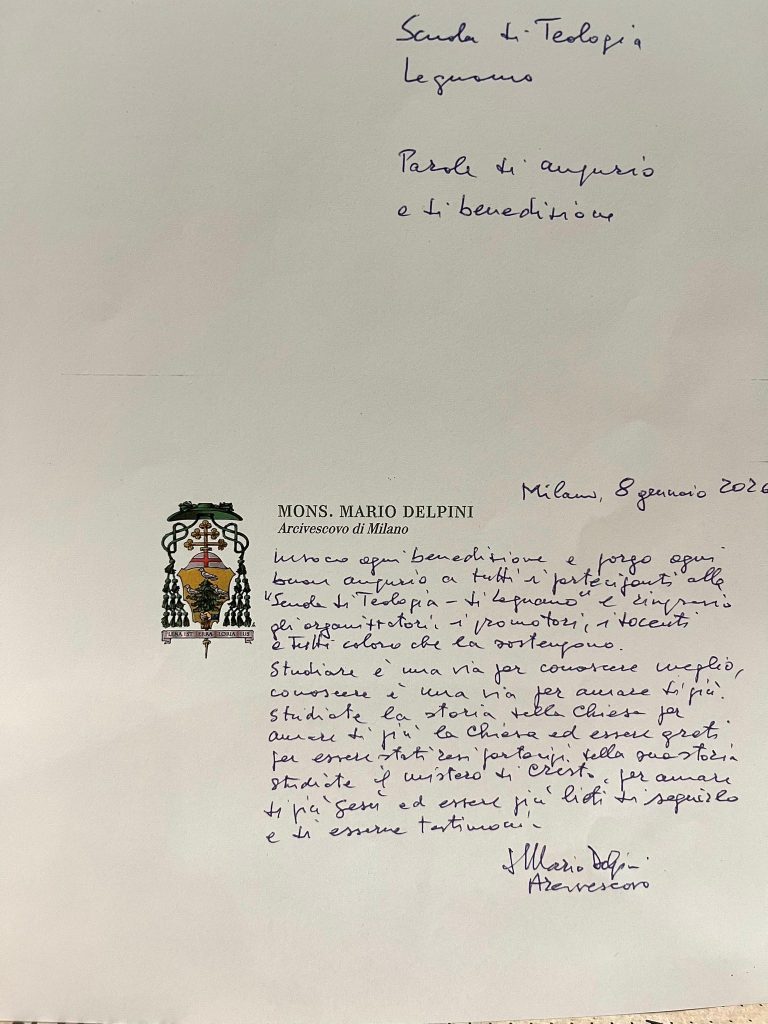 Scuola di Teologia
Legnano
Parole di augurio
e di benedizione
Milano, 8 gennaio 2026
MONS. MARIO DELPINI
Arcivescovo di Milano
Invoco ogni benedizione e porgo ogni
buon augurio a tutti i partecipanti alla
"Scuola di Teologia - di Legnano" e ringrazio
gli organizzatori, i promotori, i docenti
e tutti coloro che la sostengono.
Studiare è una via per conoscere meglio,
conoscere è una via per amare di più.
Studiate la storia della Chiesa per
amare di più la Chiesa ed essere grati
per essere stati resi partecipi della sua storia
Studiate il mistero di Cristo, per amare
di più Gesù ed essere più lieti di seguirlo
e di esserne testimoni.
PLENA EST TERRA GLORIA EIUS
+ Mario Delpini
Arcivescovo